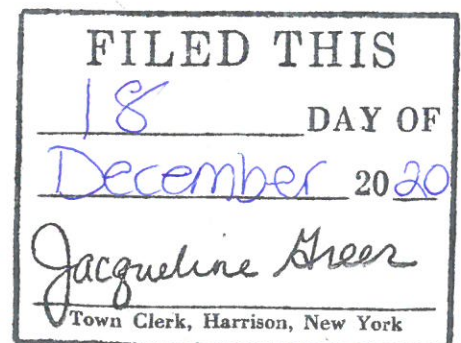 FILED THIS
18 DAY OF
December 2020
Jacqueline Greer
Town Clerk, Harrison, New York